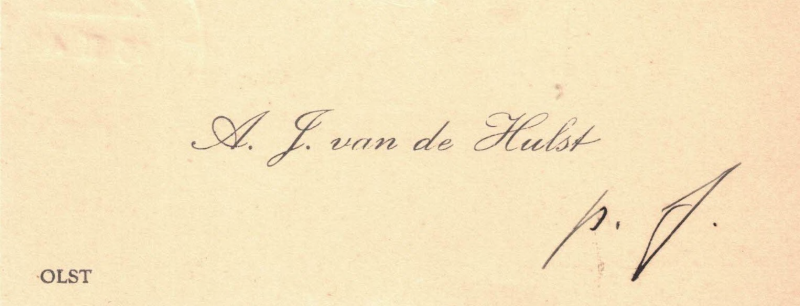 A. J. van de Hulst
p. f.
OLST